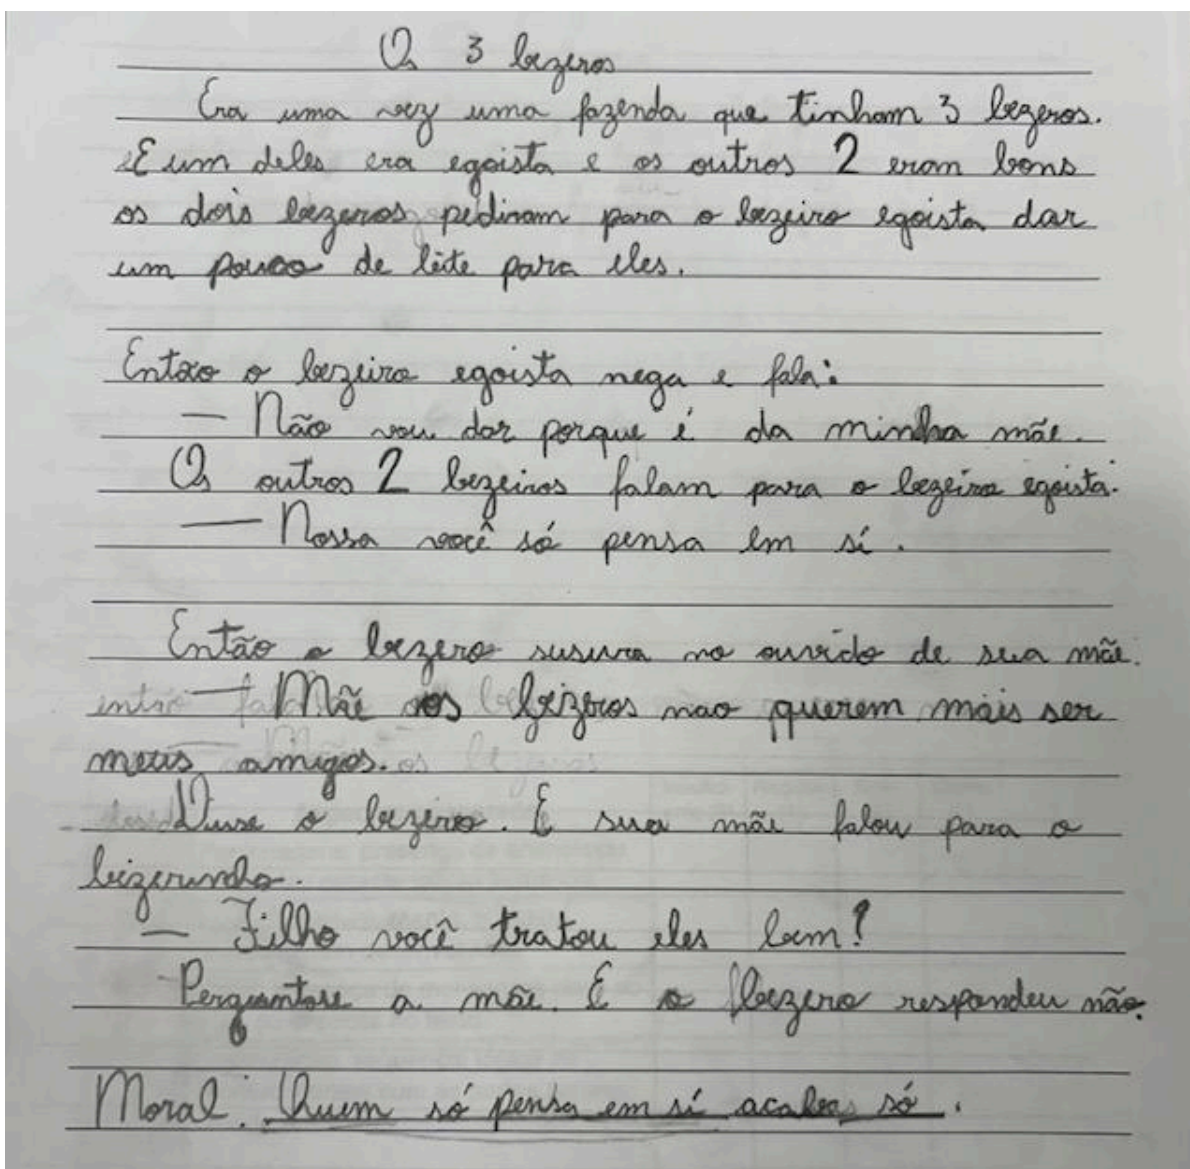 Os 3 bezeros
Era uma vez uma fazenda que tinham 3 bezeros.
E um deles era egoista e os outros 2 eram bons
os dois bezeros pediram para o bezeiro egoista dar
um pouco de leite para eles.
Entao o bezeiro egoista nega e fala:
— Não vou dar porque é da minha mãe.
Os outros 2 bezeiros falam para o bezeiro egoista:
— Nossa você só pensa em sí.
Então o bezero susura no ouvido de sua mãe.
— Mãe os bezeros nao querem mais ser
meus amigos.
Disse o bezero. E sua mãe falou para o
bizerinho.
— Filho você tratou eles bem?
Perguntou a mãe. E o bezero respondeu não.
Moral: Quem só pensa em sí acaba só.